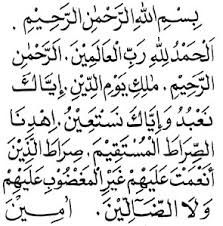 بِسْمِ اللهِ الرَّحْمٰنِ الرَّحِيْمِ .
اَلْحَمْدُ لِلهِ رَبِّ الْعَالَمِيْنَ . الرَّحْمٰنِ
الرَّحِيْمِ . مٰلِكِ يَوْمِ الدِّيْنِ . اِيَّاكَ
نَعْبُدُ وَاِيَّاكَ نَسْتَعِيْنُ . اِهْدِنَا
الصِّرَاطَ الْمُسْتَقِيْمَ . صِرَاطَ الَّذِيْنَ
اَنْعَمْتَ عَلَيْهِمْ غَيْرِ الْمَغْضُوْبِ عَلَيْهِمْ
وَلَا الضَّالِّيْنَ . اٰمِيْنَ